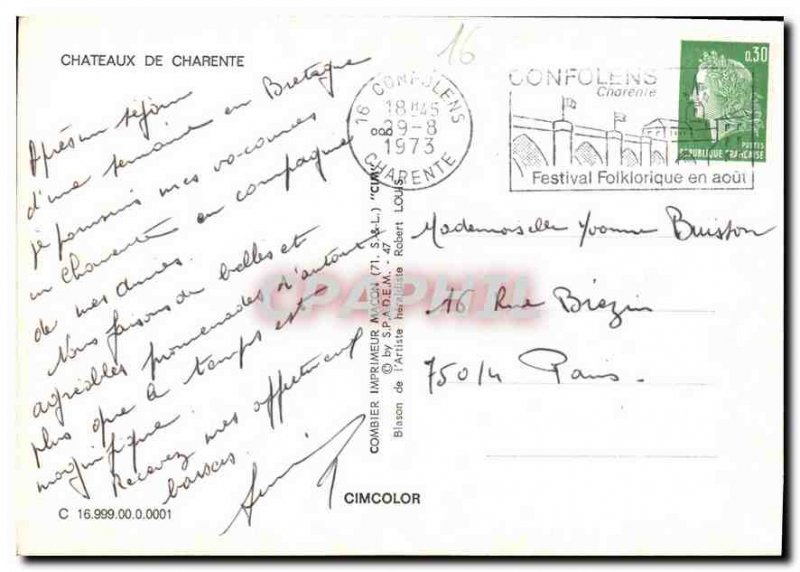 16
CHATEAUX DE CHARENTE
Après un séjour
d'une semaine en Bretagne
je poursuis mes vacances
en Charente en compagnie
de mes amies.
Nous faisons de belles et
agréables promenades d'autant
plus que le temps est
magnifique.
Recevez mes affectueux
baisers.
C 16.999.00.0.0001
16 CONFOLENS
18H45
29-8
1973
CHARENTE
CONFOLENS
Charente
Festival Folklorique en août
0,30
POSTES
REPUBLIQUE FRANÇAISE
COMBIER IMPRIMEUR MACON (71, S.-&-L.) "CIM"
© by S.P.A.D.E.M. - 47
Blason de l'Artiste héraldiste Robert LOUIS
CIMCOLOR
CPAPHIL
Mademoiselle Yvonne Buisson
16 Rue Brézin
75014 Paris.